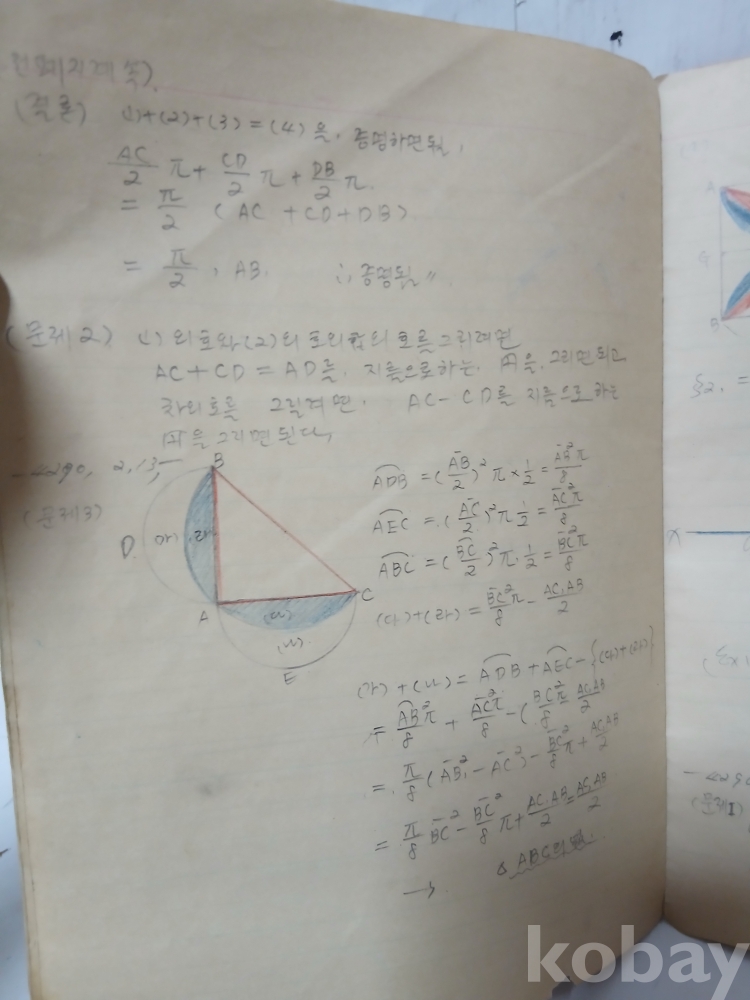 (결론) (1)+(2)+(3) = (4) 을, 증명하면됨,
AC/2 π + CD/2 π + DB/2 π.
= π/2 (AC + CD + DB)
= π/2 . AB. ∴ 증명됨 〃
(문제2) (1)의호와 (2)의 호의 合의 호를 그리려면
AC + CD = AD를, 지름으로하는, 円을, 그리면 되고
차의호를 그릴려면, AC - CD를 지름으로 하는
円을 그리면 된다,
4290, 2, 13,
(문제3)
B
D
(가) (라)
A
C
(다)
(나)
E
ADB = (AB/2)² π × 1/2 = AB²π/8
AEC = (AC/2)² π 1/2 = AC²π/8
ABC = (BC/2)² π . 1/2 = BC²π/8
(다)+(라) = BC²π/8 - AC.AB/2
(가) + (나) = ADB + AEC - {(다)+(라)}
= AB²π/8 + AC²π/8 - (BC²π/8 - AC.AB/2
= π/8 (AB² - AC²) - BC²/8 π + AC.AB/2
= π/8 BC² - BC²/8 π + AC.AB/2 = AC.AB/2
→ △ABC의
A
G
B
§2. =
X
(문제1)
kobay